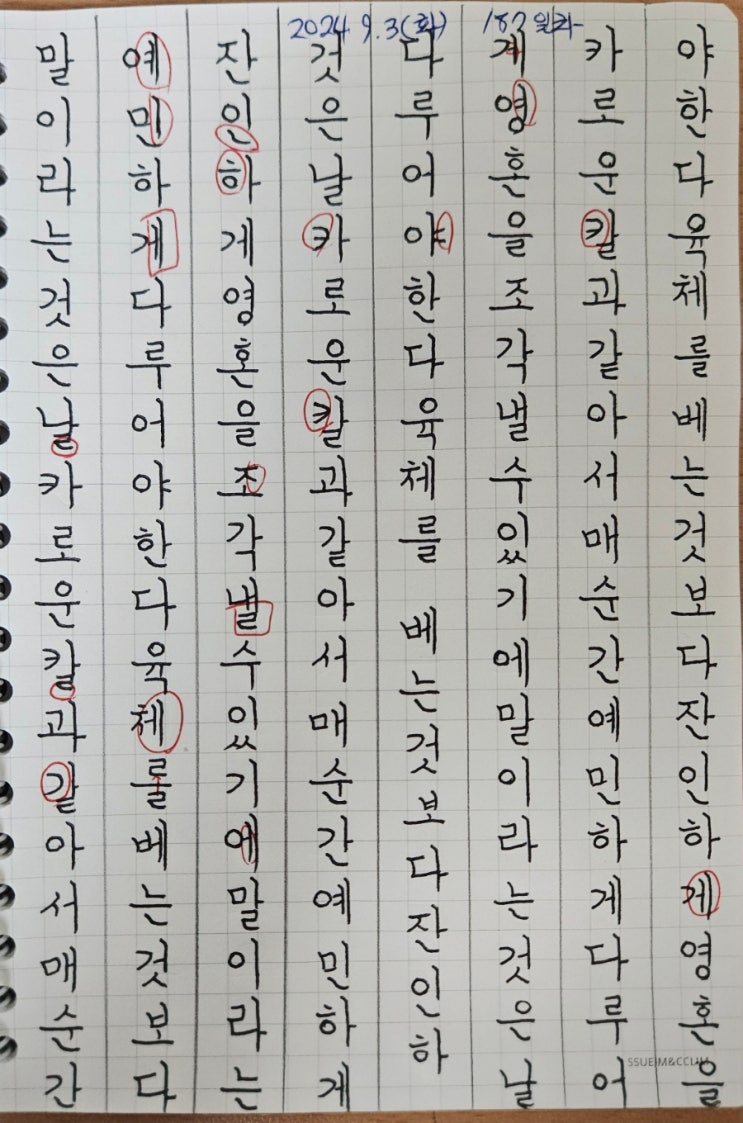 2024 9.3(화)
말이라는것은날카로운칼과같아서매순간
예민하게다루어야한다육체를베는것보다
잔인하게영혼을조각낼수있기에말이라는
것은날카로운칼과같아서매순간예민하게
다루어야한다육체를베는것보다잔인하
게영혼을조각낼수있기에말이라는것은날
카로운칼과같아서매순간예민하게다루어
야한다육체를베는것보다잔인하게영혼을
SSUEIM&CCLIM